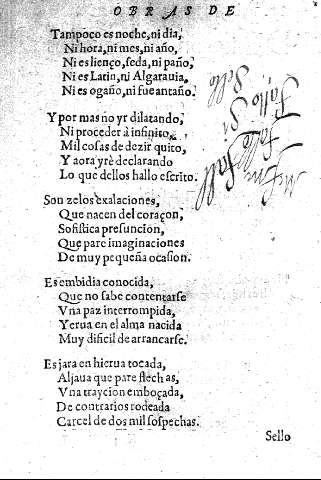 OBRAS DE
Tampoco es noche, ni dia,
Ni hora, ni mes, ni año,
Ni es lienço, seda, ni paño,
Ni es Latin, ni Algarauia,
Ni es ogaño, ni fue antaño.
Y por mas no yr dilatando,
Ni proceder à infinito,
Mil cosas de dezir quito,
Y aora yrè declarando
Lo que dellos hallo escrito.
Son zelos exalaciones,
Que nacen del coraçon,
Sofistica presuncion,
Que pare imaginaciones
De muy pequeña ocasion.
Es embidia conocida,
Que no sabe contentarse
Vna paz interrompida,
Yerua en el alma nacida
Muy dificil de arrancarse.
Es jara en hierua tocada,
Aljaua que pare flechas,
Vna traycion emboçada,
De contrarios rodeada
Carcel de dos mil sospechas.
Sello
Sello